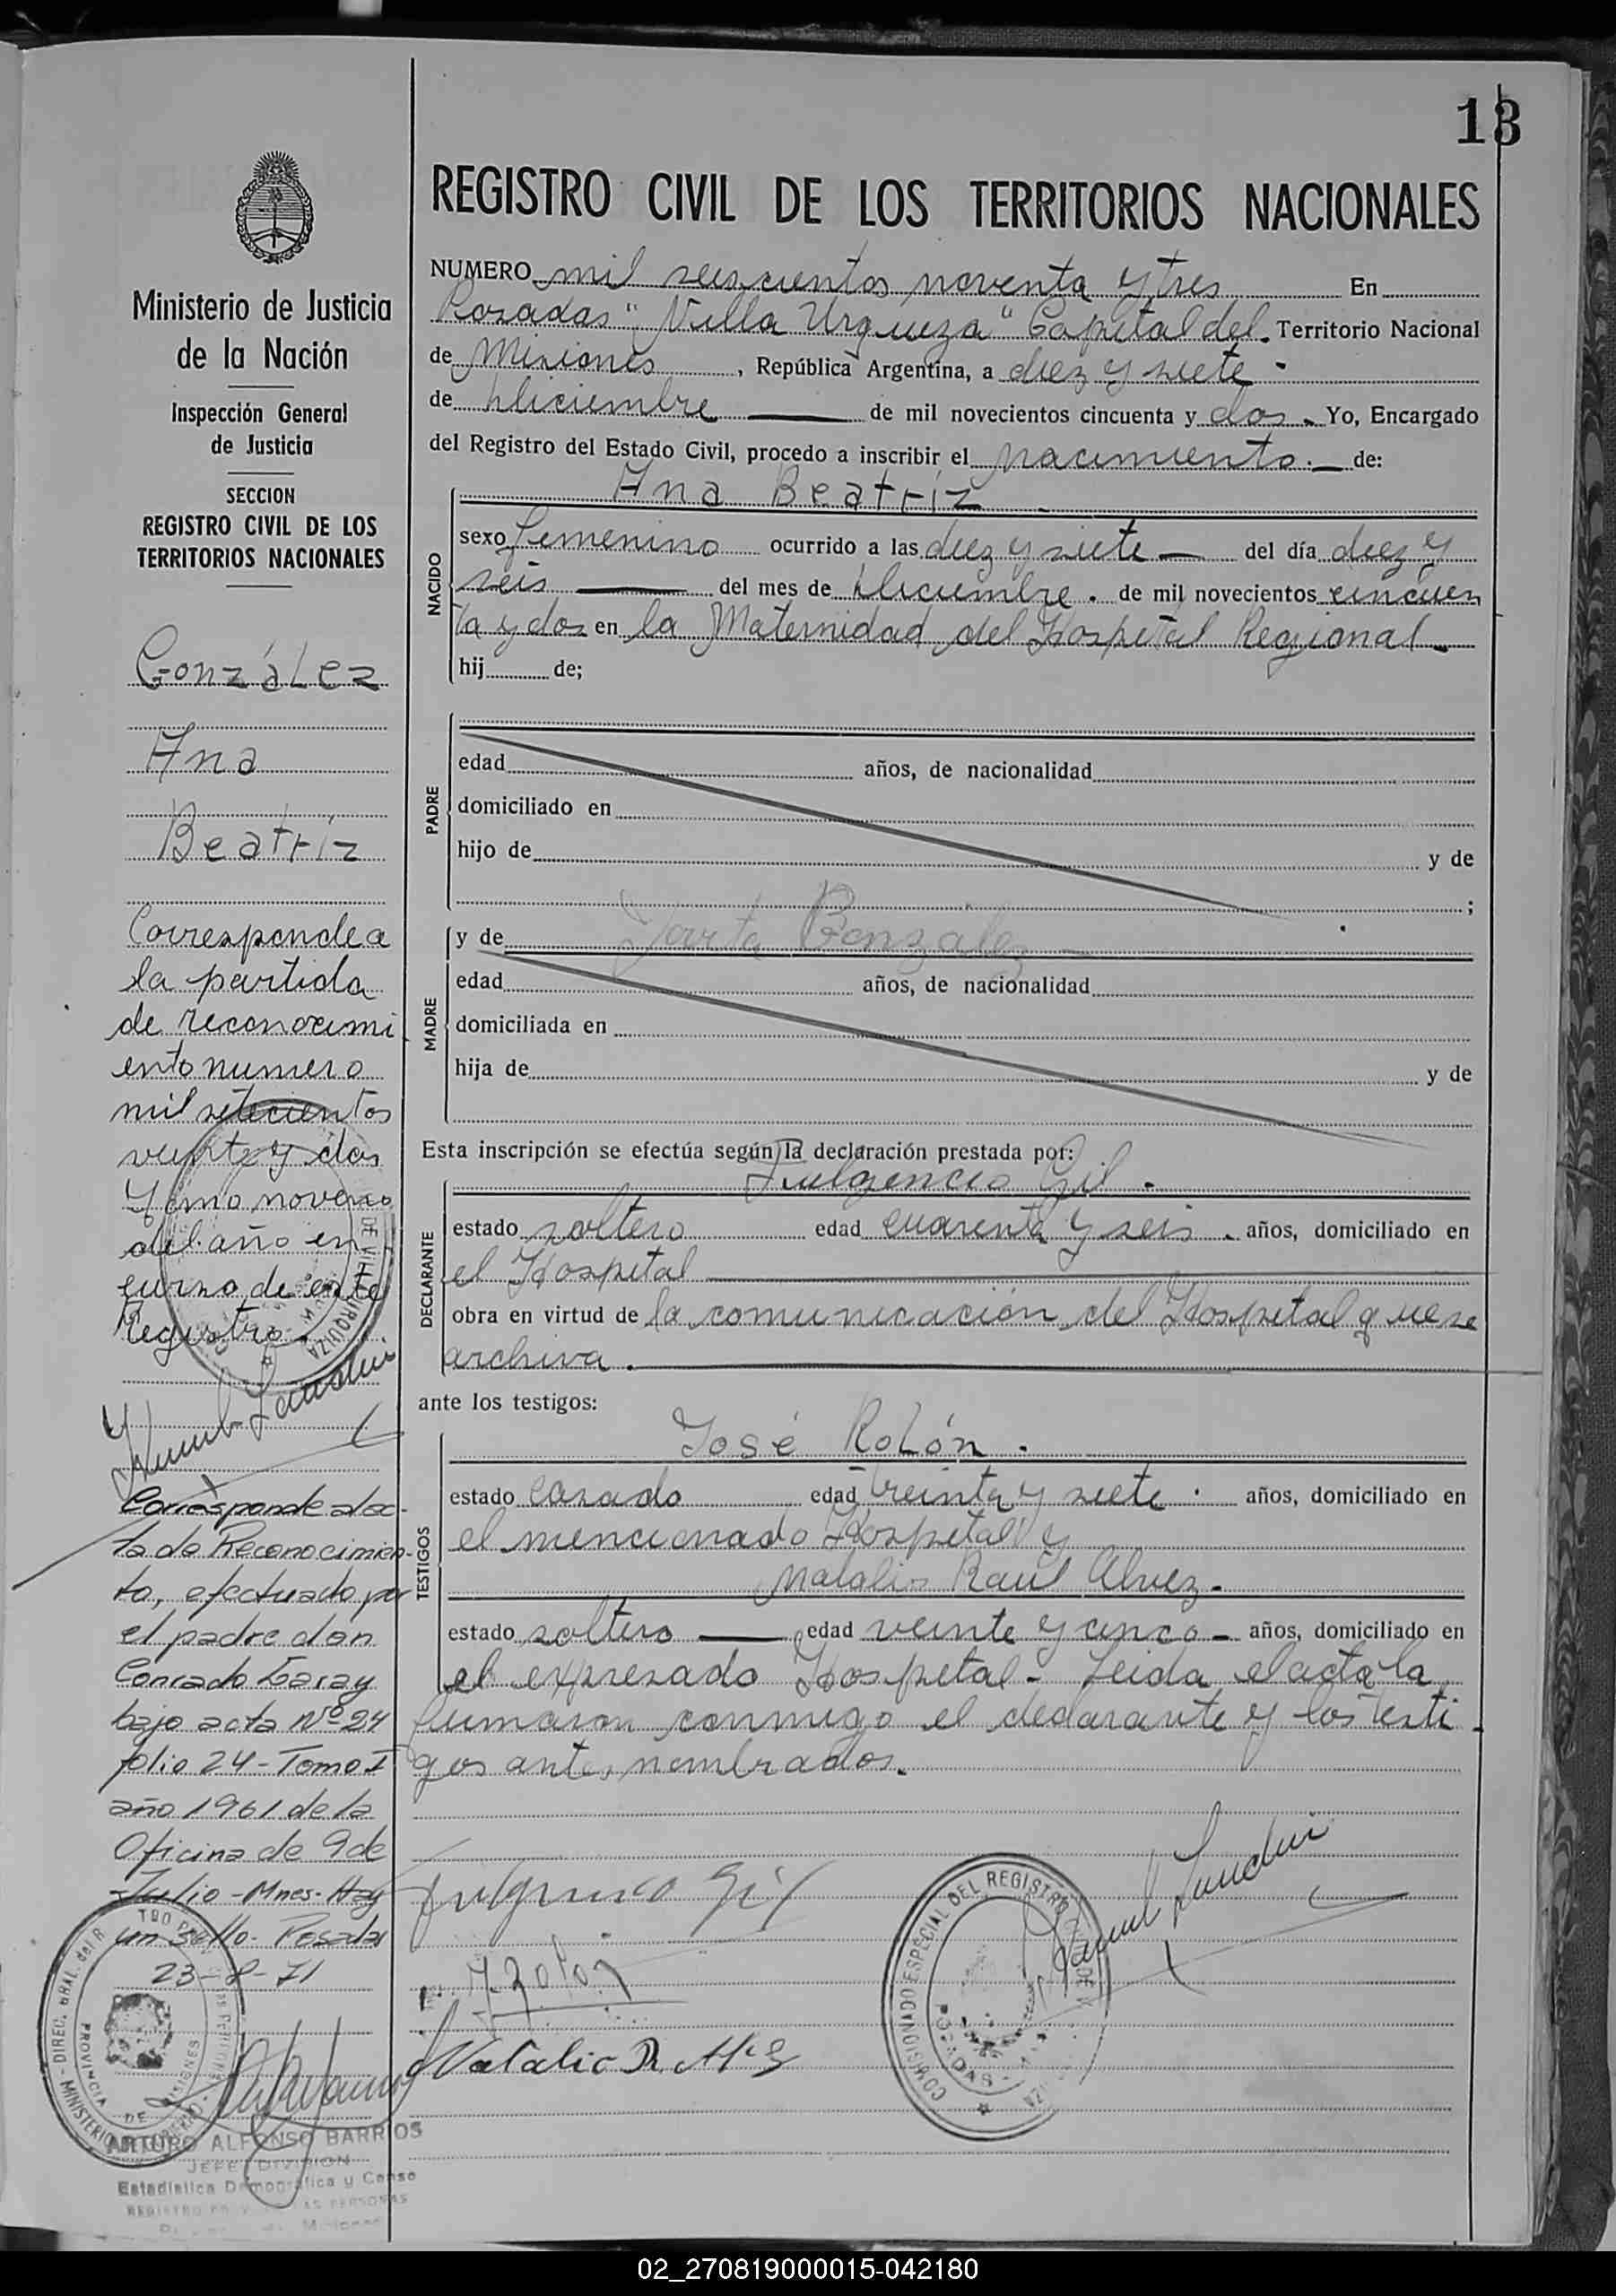 13
REGISTRO CIVIL DE LOS TERRITORIOS NACIONALES
NUMERO mil seiscientos noventa y tres En
Posadas "Villa Urquiza" Capital del. Territorio Nacional
de Misiones, República Argentina, a diez y siete
de diciembre de mil novecientos cincuenta y dos. Yo, Encargado
del Registro del Estado Civil, procedo a inscribir el nacimiento. de:
NACIDO
Ana Beatríz
sexo femenino ocurrido a las diez y siete del día diez y
seis del mes de diciembre. de mil novecientos cincuen
ta y dos en la Maternidad del Hospital Regional
hij de;
PADRE
edad años, de nacionalidad
domiciliado en
hijo de y de
;
MADRE
y de González
edad años, de nacionalidad
domiciliada en
hija de y de
Esta inscripción se efectúa según la declaración prestada por:
DECLARANTE
Fulgencio Gil.
estado soltero edad cuarenta y seis. años, domiciliado en
el Hospital
obra en virtud de la comunicación del Hospital que se
archiva.
ante los testigos:
TESTIGOS
José Rolón.
estado casado edad treinta y siete. años, domiciliado en
el mencionado Hospital y
Natalio Raúl Alvez.
estado soltero edad veinte y cinco años, domiciliado en
el expresado Hospital- Leida el acta la
firmaron conmigo el declarante y los testi
gos antes nombrados.
Fulgencio Gil
JRolón
Natalio R.
COMISIONADO ESPECIAL DEL REGISTRO
POSADAS
Ministerio de Justicia
de la Nación
Inspección General
de Justicia
SECCION
REGISTRO CIVIL DE LOS
TERRITORIOS NACIONALES
González
Ana
Beatríz
Corresponde a
la partida
de reconocimi
ento numero
mil setecientos
veinte y dos
Tomo noveno
del año en
curso de este
Registro
DE VILLA URQUIZA
Corresponde al ac-
ta de Reconocimien-
to, efectuado por
el padre don
Conrado Garay
bajo acta Nº 24
folio 24 - Tomo I
año 1961 de la
Oficina de 9 de
Julio - Mnes. Hay
un sello. Posadas
23-8-71
MINISTERIO DE GOBIERNO - DIREC. GRAL. del R
PROVINCIA DE MISIONES
ARTURO ALFONSO BARRIOS
JEFE DIVISION
Estadística Demográfica y Censo
02_270819000015-042180